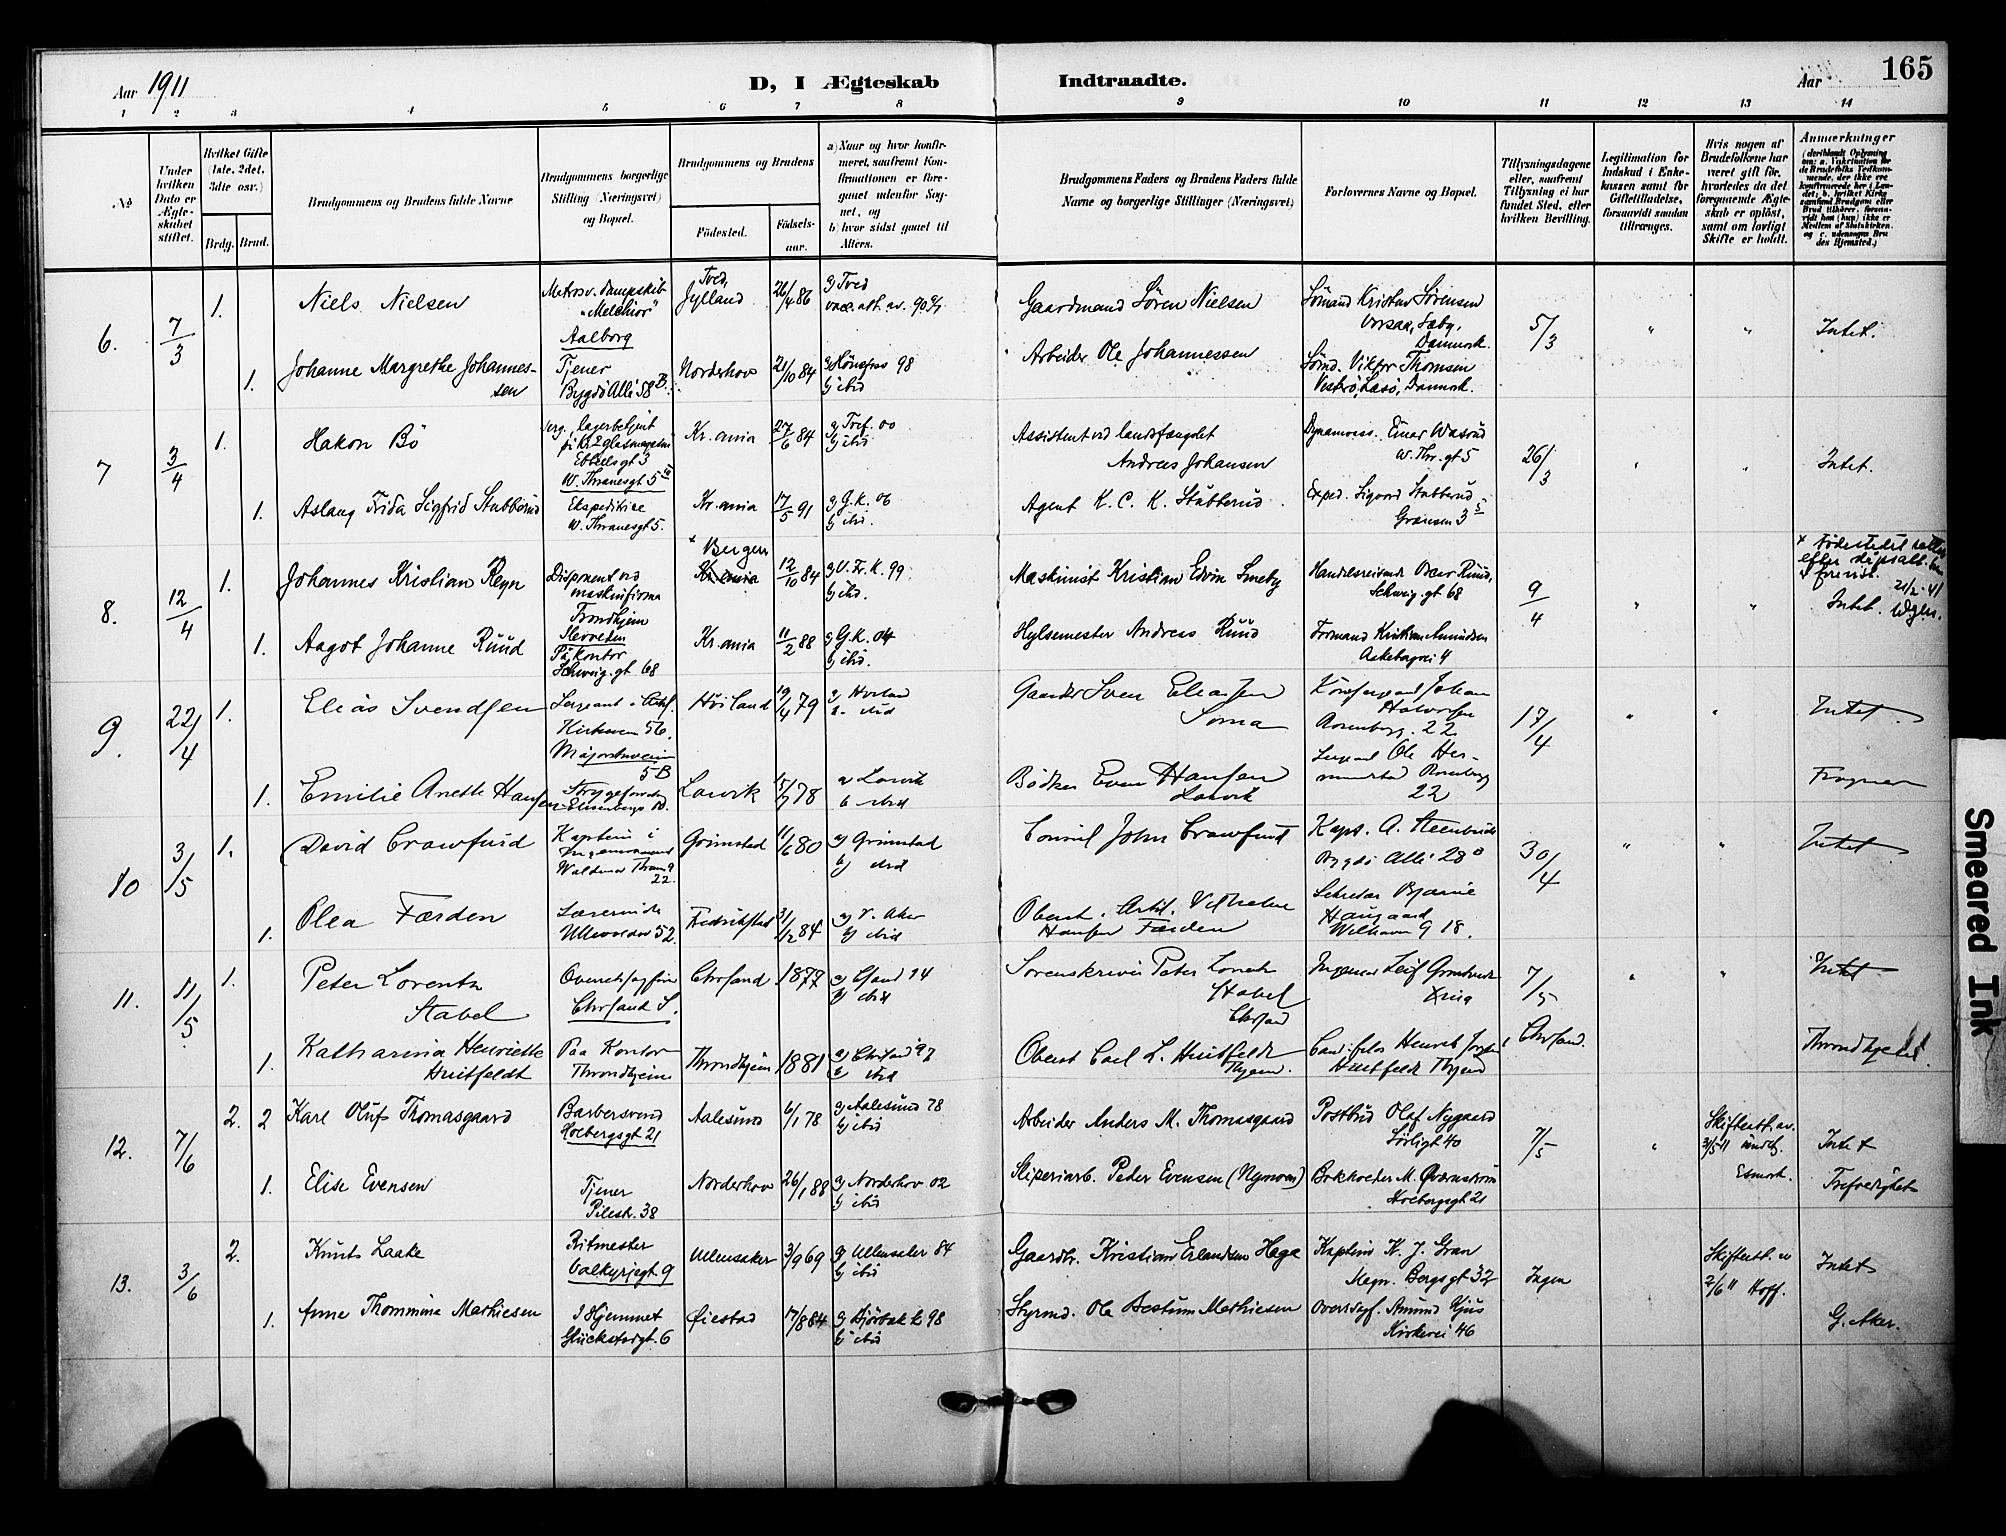 Aar 1911
D, I Ægteskab
Indtraadte.
Aar
165
1 2 3 4 5 6 7 8 9 10 11 12 13 14
No
Under hvilken Dato er Ægteskabet stiftet.
Hvilket Gifte (1ste, 2det, 3die osv.)
Brdg. Brud.
Brudgommens og Brudens fulde Navne
Brudgommens borgerlige Stilling (Næringsvei) og Bopæl.
Brudgommens og Brudens
Fødested.
Fødselsaar.
a) Naar og hvor konfirmeret, saafremt Konfirmationen er foregaaet udenfor Sognet, og
b) hvor sidst gaaet til Alters.
Brudgommens Faders og Brudens Faders fulde Navne og borgerlige Stillinger (Næringsvei)
Forlovernes Navne og Bopæl.
Tillysningsdagene eller, saafremt Tillysning ei har fundet Sted, efter hvilken Bevilling.
Legitimation for Indskud i Enkekassen samt for Giftetilladelse, forsaavidt saadan tiltrænges.
Hvis nogen af Brudefolkene har været gift før, hvorledes da det foregaaende Ægteskab er opløst, samt om lovligt Skifte er holdt.
Anmerkninger
6.
7/3
1.
Niels Nielsen
Matros v. dampskib
"Melchior"
Aalborg
Tved,
Jylland
26/4 86
a) Tved
vacc. att. av.
Gaardmand Sören Nielsen
Sömand Kristian Sörensen
Sæby,
Danmark.
5/3
"
"
Intet.
1.
Johanne Margrethe Johannessen
Tjener
Bygdö Allé 58 B.
Norderhov
21/10 84
a) Hönefoss 98
b) ibid
Arbeider Ole Johannessen
Sömd. Viktor Thomsen
Vesterö, Læsö, Danmark.
7
3/4
1.
Hakon Bö
lagerbetjent
Ebbelsgt 3
W. Thranesgt 5
Kr.ania
27/6 84
a) Tref. 00
b) ibid
Assistent ved landsfængslet
Andreas Johansen
Einar
W. Thr. gt 5
26/3
Intet.
1.
Aslaug Frida Sigfrid Stubberud
Ekspeditrice
W. Thranesgt 5.
Kr.ania
17/5 91
a) G.k. 06
b) ibid.
Agent K. C. K. Stubberud
Exped. Sigvord Stubberud
Grænsen 3
8.
12/4
1.
Johannes Kristian Regn
Disponent ved
maskinfirma
Trondhjem
x Bergen
Kr.ania
12/10 84
a) V. Fr. k. 99.
b) ibid.
Maskinist Kristian Edvin Smeby
Handelsreisende Oscar Ruud,
Schweig. gt 68
9/4
"
"
x Födestedet rettet
efter dåpsatt. her
forevist.
21/2-41
Intet.
1.
Aagot Johanne Ruud
På kontor
Schweig. gt 68
Kr.ania
11/2 88
a) G.k. 04
b) ibid.
Hylsemester Andreas Ruud
Formand Kristian Amundsen
Askebergvei 4
9.
22/4
1.
Elias Svendsen
Sergeant
Kirkeveien 56.
Majorstuveien
5 B
Höiland
19/4 79
a) Höiland
b. ibid
Gaardbr Sven Eliassen
Soma
Johan
Halvorsen
Rosenborg. 22
17/4
"
"
Intet.
1.
Emilie Anette Hansen
Larvik
15/7 78
a Larvik
b ibid
Bödker Even Hansen
Larvik
Sergeant Ole Hermundstad Rosenborg
22
Frogner
10
3/5
1.
David Crawfurd
Kaptein i
Waldemar Thranes g
22.
Grimstad
11/6 80
a) Grimstad
b) ibid
Consul John Crawfurd
Kapt. A. Steenbuch
Bygdö Allé 28
30/4
"
"
Intet.
1.
Olea Færden
Lærerinde
Ullevoldsv 52.
Fredrikstad
31/12 84
a) V. Aker
b) ibid
Oberst. Artil. Vilhelm
Hansen Færden
Sekretær Bjarne
Haugaard
Welhavn g 18.
11.
11/5
1.
Peter Lorentz
Stabel
Overretssagfører
Chrsand S.
Chrsand
1877
a) Csand 94
b) ibid
Sorenskriver Peter Lorentz
Stabel
Chrsand
Ingeniør Leif
Xnia
7/5
"
"
Intet
1.
Katharina Henriette
Huitfeldt
Paa Kontor
Throndhjem
Throndhjem
1881
a) Chrsand 97
b) ibid
Oberst Carl L. Huitfeldt
Thjem.
Cand. filos Henrik Jörgen
Huitfeldt Thjem
Chrsand.
Throndhjem
12.
7/6
2. 2
Karl Oluf Thomasgaard
Barbersvend
Holbergsgt 21
Aalesund
6/1 78
a) Aalesund 78
b) ibid
Arbeider Anders M. Thomasgaard
Postbud Olaf Nygaard
Sörligt 40
7/5
"
Skifteatt. av.
31/5 11
Intet
1.
Elise Evensen
Tjener
Pilestr. 38
Norderhov
26/1 88
a) Norderhov 02
b) ibid
Sliperiarb. Peder Evensen (Nymoen)
Bokholder M. Qvernström
Holbergsgt 21
Trefoldighet
13.
3/6
2.
Knut Laake
Ritmester
Valkyrjegt. 9
Ullensaker
3/9 69
a) Ullensaker 84
b) ibid
Gaardbr. Kristian Erlandsen Haga
Kaptein K. J. Gran
Magn. Bergsgt 32
Ingen
Skifteatt. av
2/6 11 Hoff.
Intet
1.
Anne Thommine Mathiesen
I Hjemmet
Glückstadgt. 6
Øiestad
17/8 84
a) Bjorbekk 98
b) ibid
Styrmd. Ole Bestum Mathiesen
Overrsagf. Amund Kjus
Kirkevei 46
G. Aker.
Smeared Ink